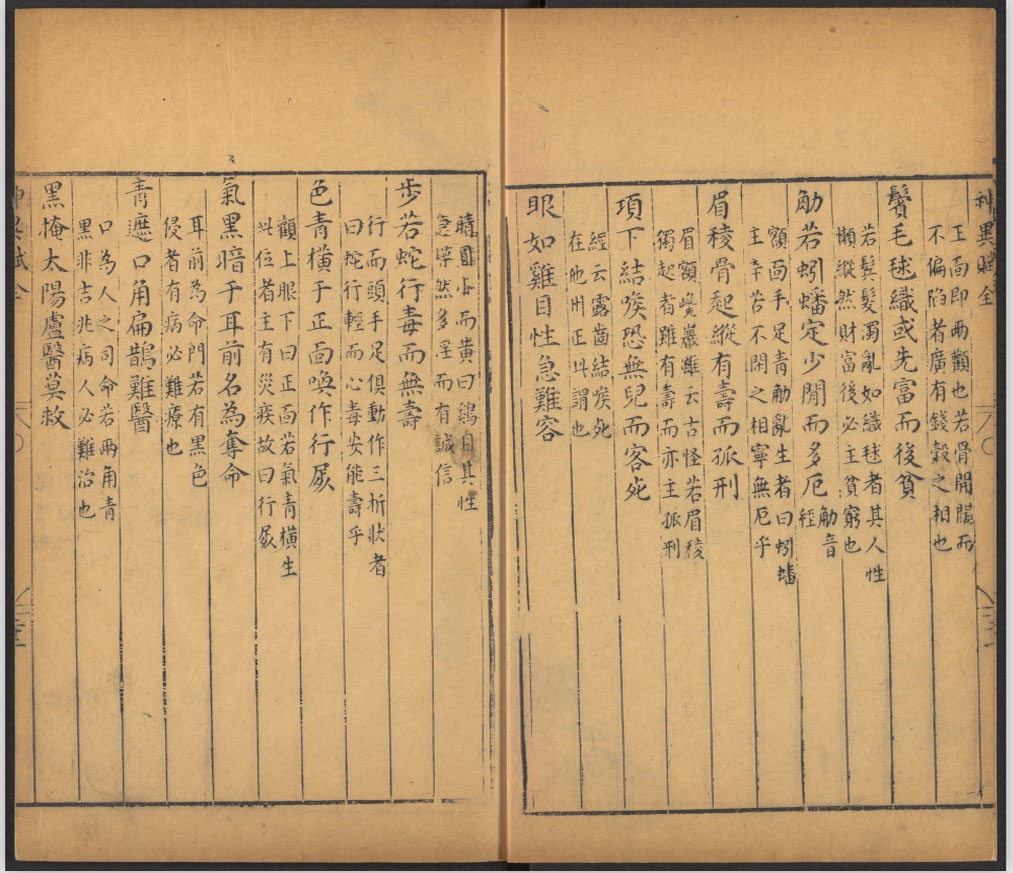 神異賦全
正面即兩顴也若骨開闊而
不偏陷者廣有錢穀之相也
鬢毛毬織或先富而後貧
若鬂髮濁亂如織毬者其人性
懶縱然財富後必主貧窮也
觔若蚓蟠定少閒而多厄觔音
經
額面手足青觔亂生者曰蚓蟠
主辛苦不閑之相寧無厄乎
眉稜骨起縱有壽而孤刑
眉額巉巖雖云古怪若眉稜
獨起者雖有壽而亦主孤刑
項下結喉恐無兒而客死
經云露齒結喉死
在他州正此謂也
眼如雞目性急難容
睛圓小而黃曰鷄目其性
急㦬然多淫而有誠信
步若蛇行毒而無壽
行而頭手足俱動作三折狀者
曰蛇行輕而心毒安能壽乎
色青橫于正面喚作行屍
顴上眼下曰正面若氣青橫生
此位者主有災疾故曰行屍
氣黑暗于耳前名為奪命
耳前為命門若有黑色
侵者有病必難療也
青遮口角扁鵲難醫
口為人之司命若兩角青
黑非吉兆病人必難治也
黑掩太陽盧醫莫救